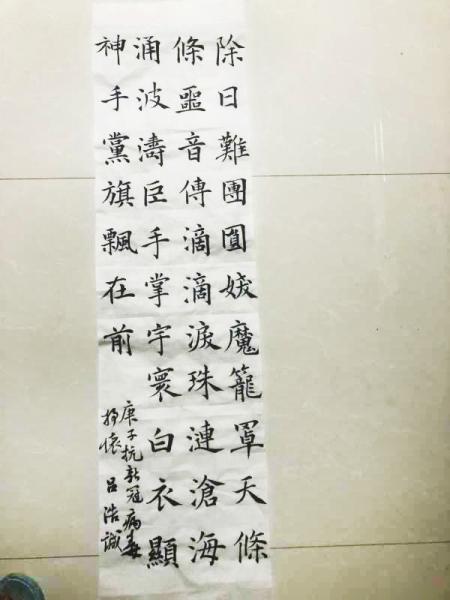 除日難團圓魔籠罩天條
條噩音傳滴滴淚珠漣滄海
涌波濤臣手掌宇寰白衣顯
神手黨旗飄在前
庚子抗新冠病毒
抒懷 呂浩誠